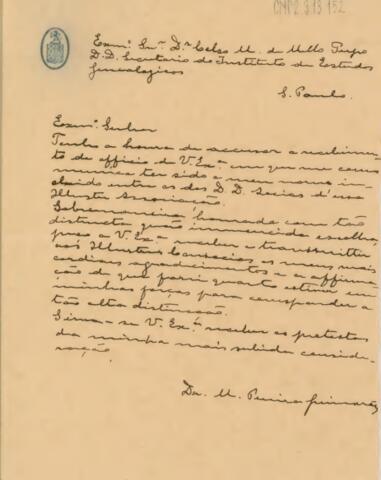 CMP2.3.13.152
Exmº. Snr. Dr. Celso M. de Mello Pupo
D.D. Secretario do Instituto de Estudos
Genealogicos
S. Paulo.
Exmº. Senhor
Tenho a honra de accusar o recebimen-
to do officio de V. Exª em que me com-
munica ter sido o meu nome in-
cluido entre os dos D. D. Socios d'essa
Illustre Associação.
Sobremaneira honrada com tão
distincta quão immerecida escolha
peço a V. Exª receber e transmittir
aos Illustres Consocios os meus mais
cordiaes agradecimentos e a affirma-
ção de que farei quanto estiver em
minhas forças para corresponder a
tão alta distincção.
Sirva-se V. Exª. receber os protestos
da minha mais subida conside-
ração.
Da. M. Pereira Guimarães